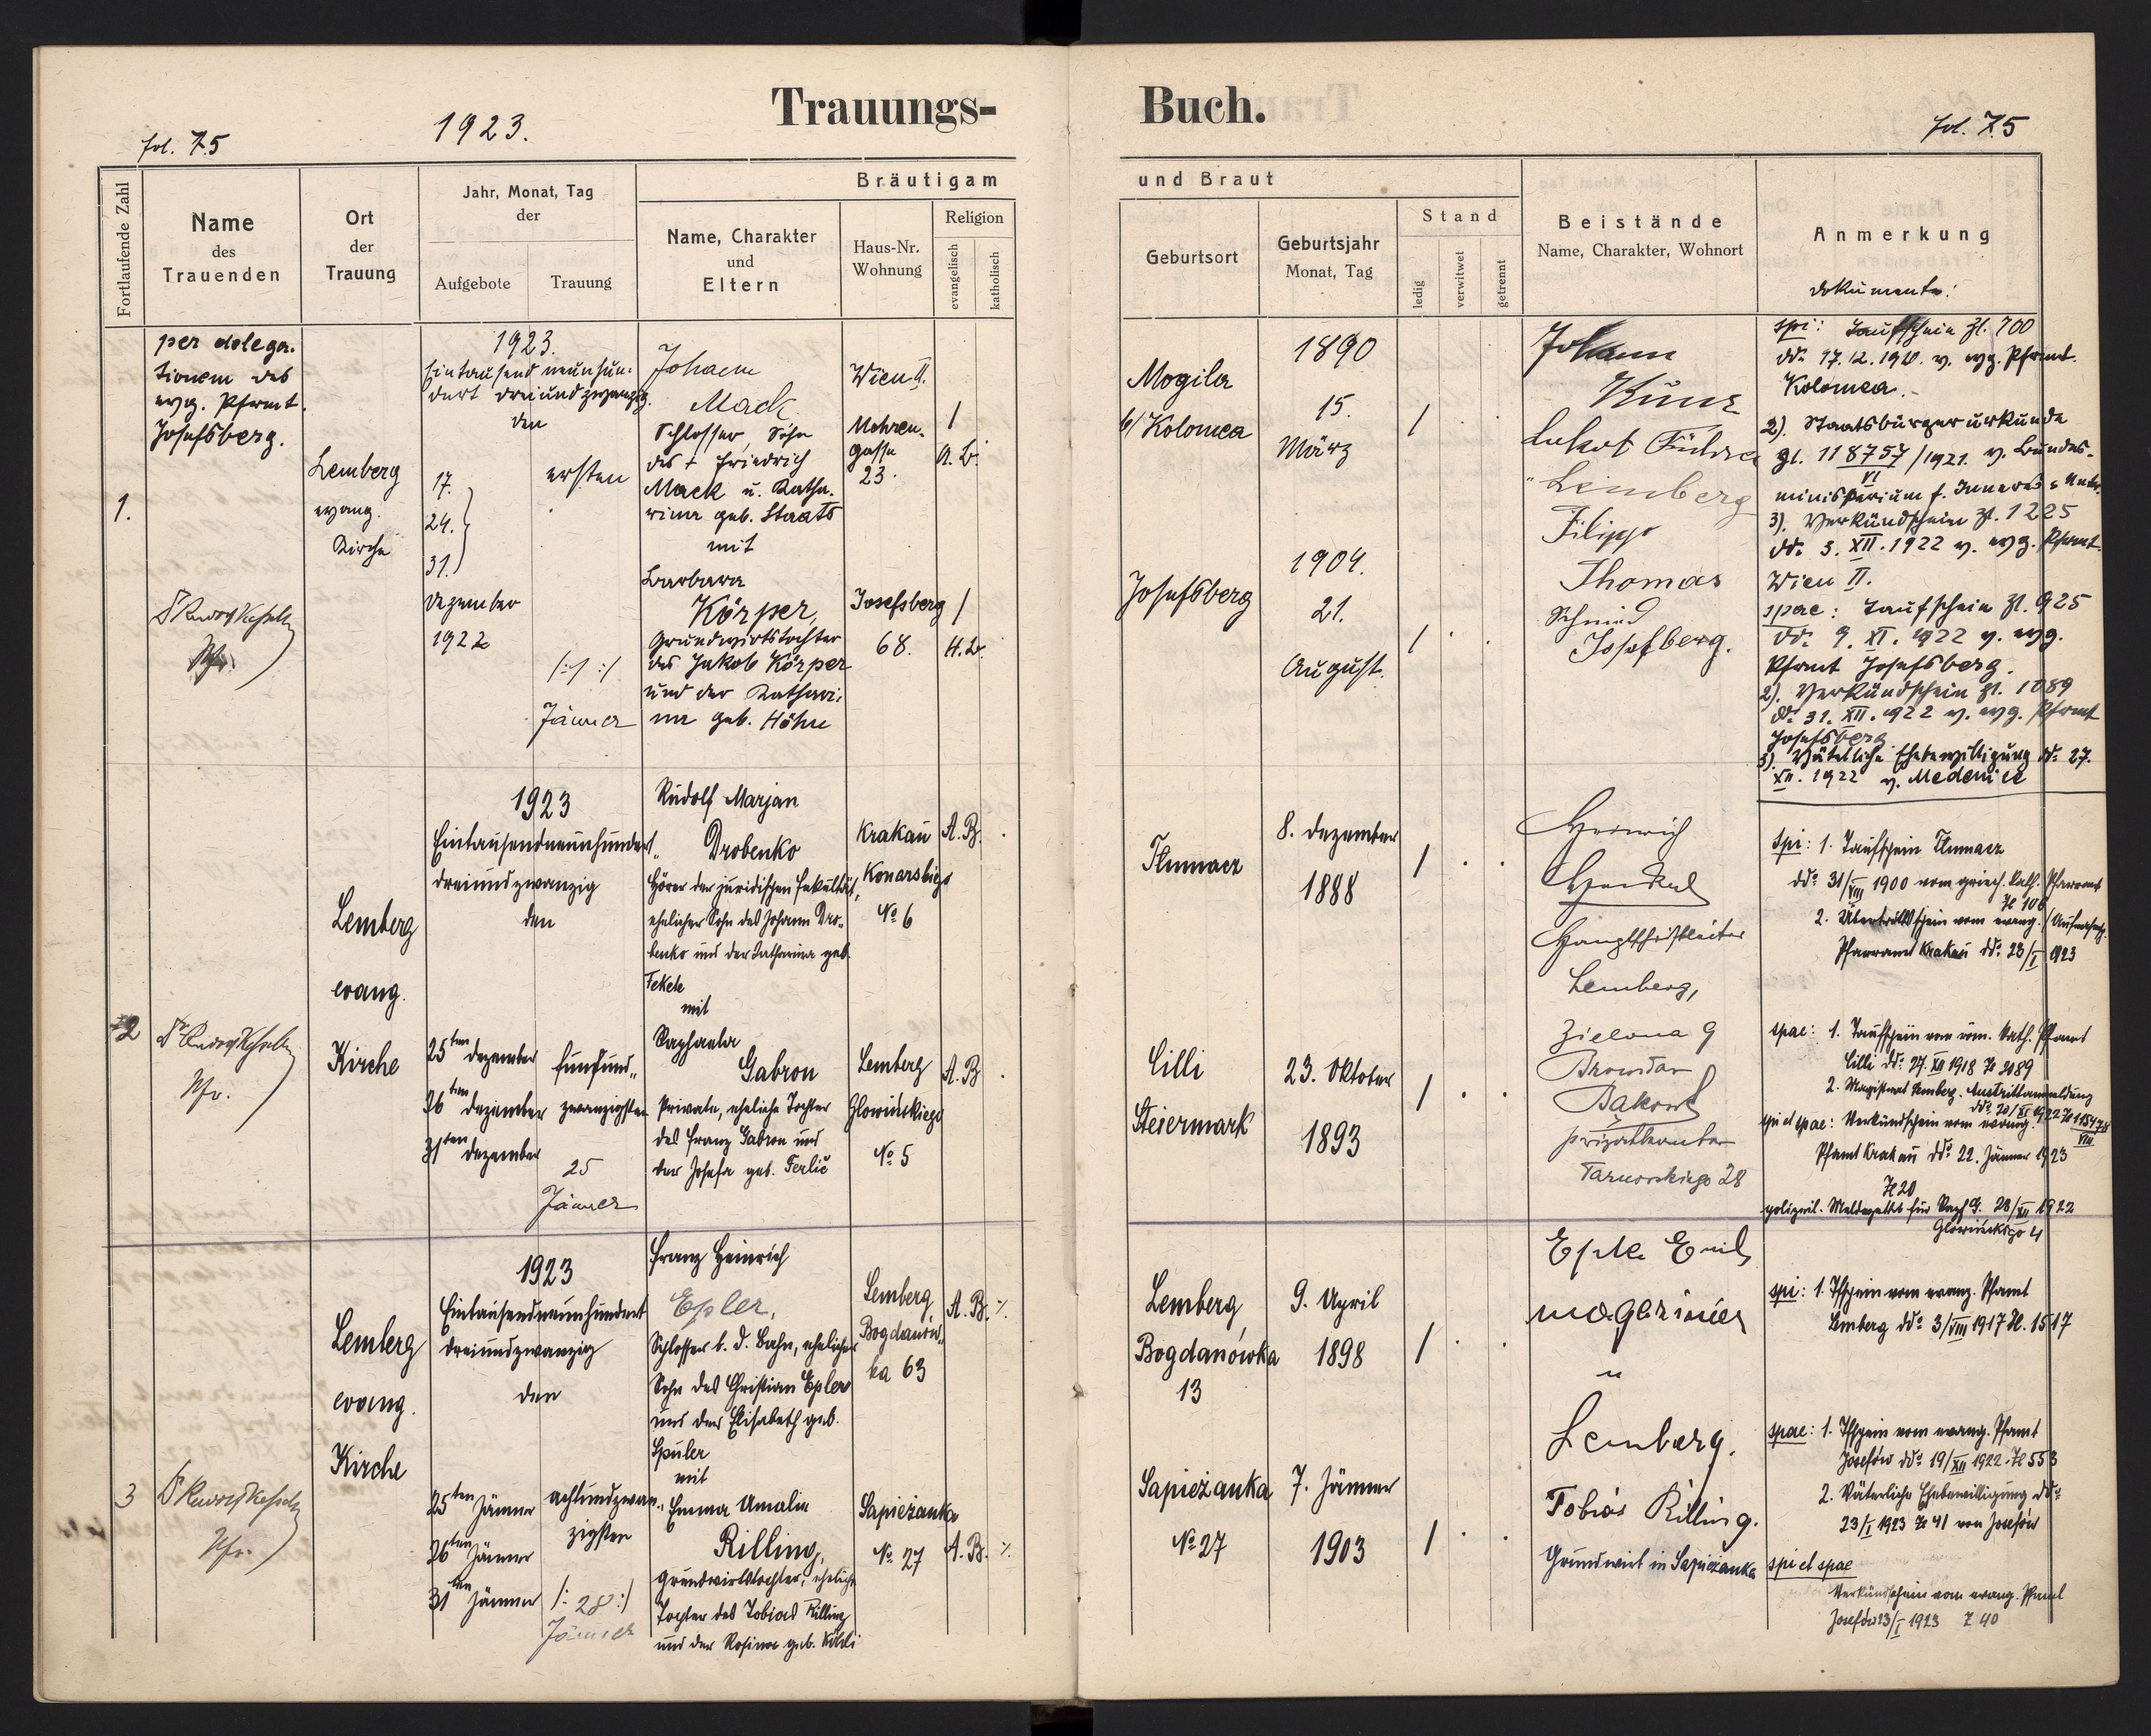 Trauungs-
Buch.
1923.
fol. 75
fol. 75
Fortlaufende Zahl
Name
des
Trauenden
Ort
der
Trauung
Jahr, Monat, Tag
der
Aufgebote
Trauung
Bräutigam
Name, Charakter
und
Eltern
Haus-Nr.
Wohnung
Religion
evangelisch
katholisch
und Braut
Geburtsort
Geburtsjahr
Monat, Tag
Stand
ledig
verwitwet
getrennt
Beistände
Name, Charakter, Wohnort
Anmerkung
Dokumente:
1.
per delega-
tionem des
evg. Pframt.
Josefsberg.
Pfr.
Lemberg
evang.
Kirche
1923.
Eintausend neunhun-
dert dreiundzwanzig
den
17.
24.
31.
Dezember
1922
ersten
/:1:/
Jänner
Johann
Mack
Schlosser, Sohn
des + Friedrich
Mack u. Katha-
rina geb. Staats
mit
Barbara
Körper,
Grundwirtstochter
des Jakob Körper
und der Kathari-
na geb. Höhn
Wien II.
Mohren-
gasse
23.
/
A.B.
Josefsberg
68.
/
H.B.
Mogila
b/ Kolomea
1890
15.
März
/
Josefsberg
1904.
21.
August.
/
Johann
Kunz
Lemberg
Filipp
Thomas
Schmied
Josefberg.
spi: Taufschein Zl. 700
dd: 17.12.1910. v. evg. Pframt.
Kolomea.
2). Staatsbürgerurkunde
Zl. 118757/1921. v. Bundes-
VI
ministerium f. Inneres u. Unter.
3). Verkündschein Zl. 1225
dd. 3. XII. 1922 v. evg. Pframt.
Wien II.
spae: Taufschein Zl. 925
dd: 9. XI. 1922 v. evg.
Pframt Josefsberg.
2). Verkündschein Zl. 1089
dd: 31. XII. 1922 v. evg. Pframt
Josefsberg
3). Väterliche Ehebewilligung dd: 27.
XII. 1922 v. Medenice
2
Pfr.
Lemberg
evang.
Kirche
1923
Eintausendneunhundert
dreiundzwanzig
den
25ten Dezember
26ten Dezember
31ten Dezember
fünfund-
zwanzigsten
25
Jänner
Rudolf Marjan
Drobenko
Hörer der juridischen Fakultät,
ehelicher Sohn des Johann Dro-
benko und der Katharina geb.
Fekete
mit
Raphaela
Gabron
Private, eheliche Tochter
des Franz Gabron und
der Josefa geb. Ferlič
Krakau
Konarskiego
No 6
A.B.
Lemberg
Glowińskiego
No 5
A.B.
Tlumacz
8. Dezember
1888
/
Cilli
Steiermark
23. Oktober
1893
/
Heinrich
Hauptschriftleiter
Lemberg,
Zielona 9
Bakowski
Tarnowskiego 28
spi: 1. Taufschein Tlumacz
ddo 31/VIII 1900 vom griech. kath. Pfarramt
Zl 106
2. Übertrittschein vom evang.
Pfarramt Krakau ddo 23/I 1923
spae: 1. Taufschein vom röm. kath. Pframt
Cilli dd: 27. XII 1918 Zl 2089
2. Magistrat Lemberg. Austrittanmeldung
spi et spae: Verkündschein vom evang.
Pframt Krakau ddo 22. Jänner 1923
Zl 20
28/XII 1922
3
Pfr.
Lemberg
evang.
Kirche
1923
Eintausendneunhundert
dreiundzwanzig
den
25ten Jänner
26ten Jänner
31ten Jänner
achtundzwan-
zigsten
/: 28 :/
Jänner
Franz Heinrich
Epler,
Schlosser b. d. Bahn, ehelicher
Sohn des Christian Epler
und der Elisabeth geb.
Spuler
mit
Emma Amalia
Rilling,
Grundwirtstochter, eheliche
Tochter des Tobias Rilling
und der Rosina geb. Köhli
Lemberg
Bogdanów-
ka 63
A.B.
Sapieżanka
No 27
A.B.
Lemberg
Bogdanówka
13
9. April
1898
/
Sapieżanka
No 27
7. Jänner
1903
/
magazinier
Lemberg.
Tobias Rilling.
Grundwirt in Sapieżanka
spi: 1. Tfschein vom evang. Pframt
Lemberg ddo 3/VIII 1917 Zl. 1517
spae: 1. Tfschein vom evang. Pframt
Josefów ddo 19/XII 1922. Zl 553
2. Väterliche Ehebewilligung ddo
23/I 1923 Zl 41 von Josefów
spi et spae
Verkündschein vom evang. Pframt
Josefów 23/I 1923 Z 40